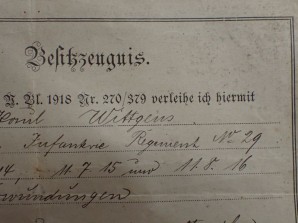 Besitzzeugnis.
N. Bl. 1918 Nr. 270/379 verleihe ich hiermit
Wittgens
Infanterie Regiment No 29
14, 11.7.15 und 11.8.16
wundungen